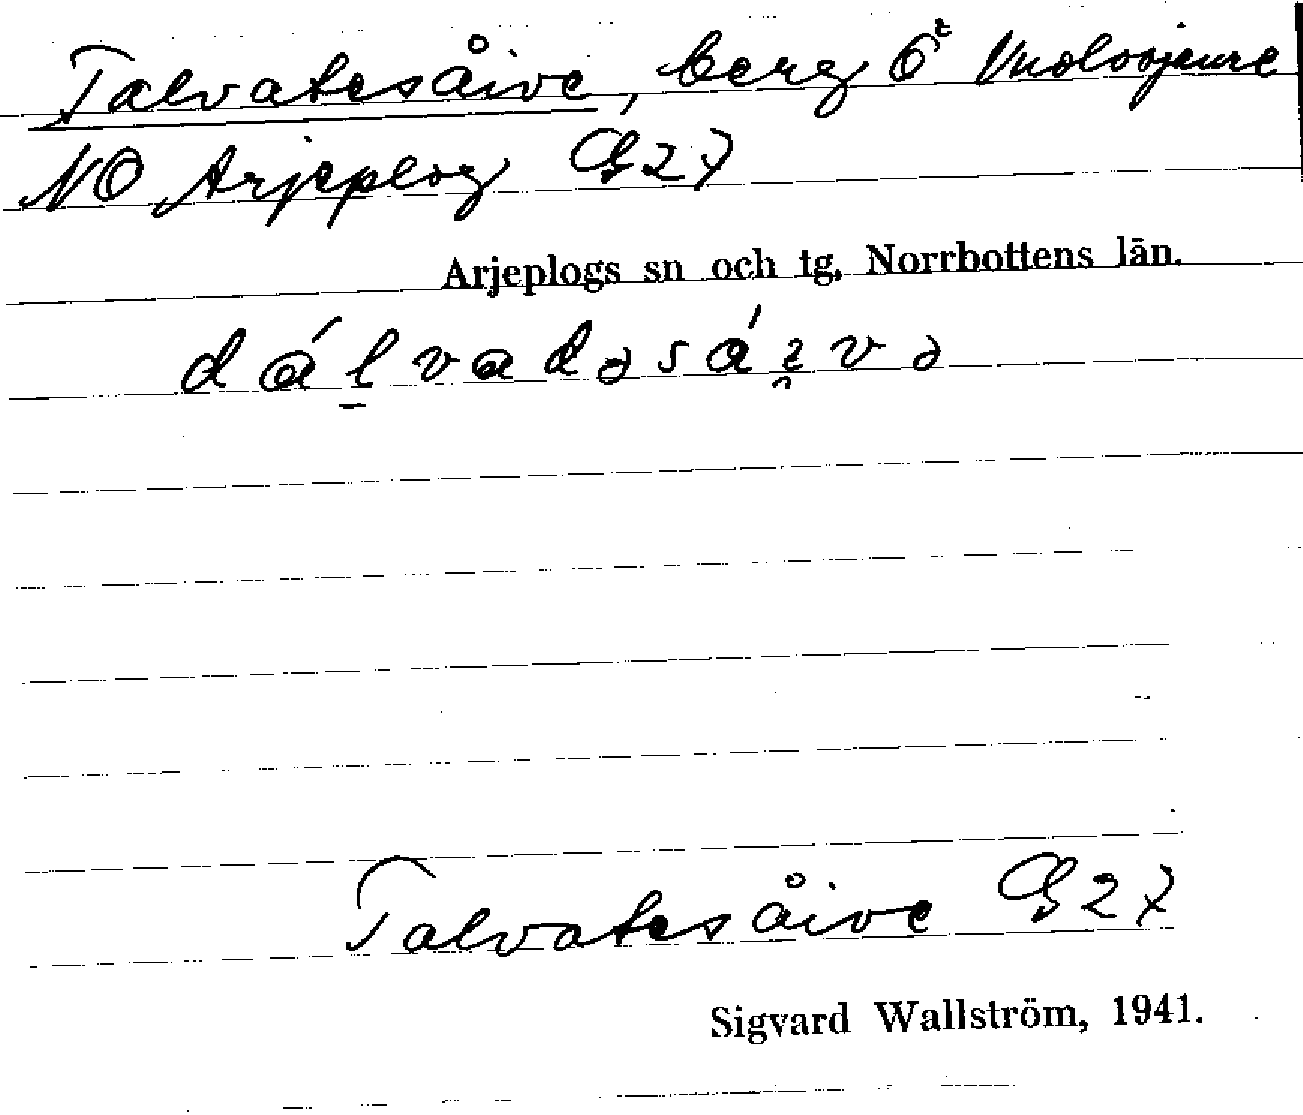 Talvatesåive, berg Ö^t Vuolovjaure
NO Arjeplog G27
Arjeplogs sn och tg, Norrbottens län.
dálvadəsái̯və
Talvatesåive G27
Sigvard Wallström, 1941.